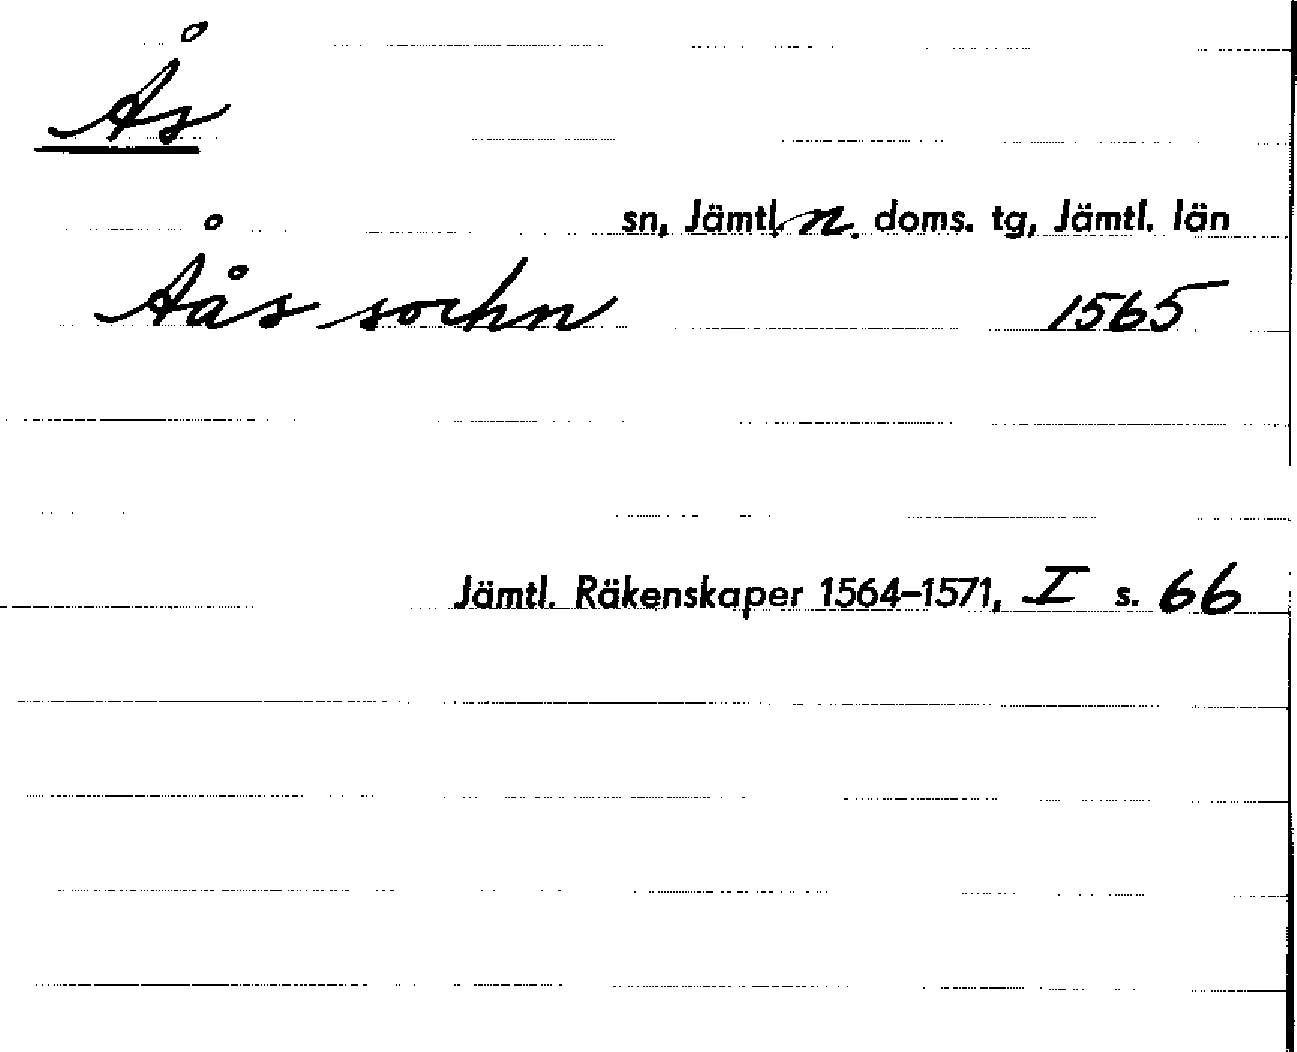 Ås
sn, Jämtl. n. doms. tg, Jämtl. län
Åås sochn 1565
Jämtl. Räkenskaper 1564–1571, I s. 66